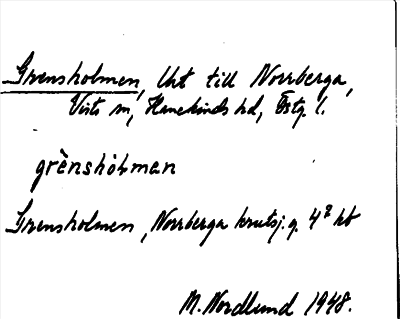 Grensholmen, lht till Norrberga,
Vists sn, Hanekinds hd, Östg. l.
grènshòlman
Grensholmen, Norrberga krutsj. g. 4² kb
M. Nordlund 1948.